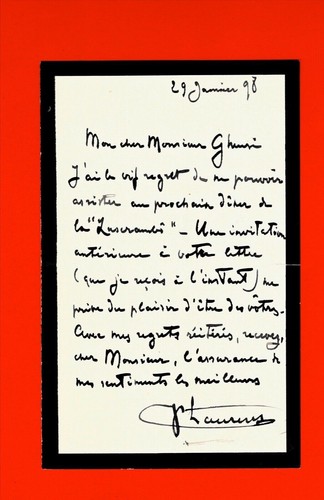 29 Janvier 98
Mon cher Monsieur Gheusi
J'ai le vif regret de ne pouvoir
assister au prochain dîner de
la "Luscrambo" – Une invitation
antérieure à votre lettre
(que je reçois à l'instant) me
prive du plaisir d'être des vôtres.
Avec mes regrets réitérés, recevez,
cher Monsieur, l'assurance de
mes sentiments les meilleurs
Laurens